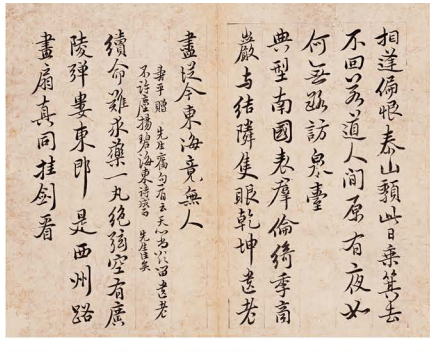 相逢偏恨泰山頹此日乘箕去
不回若道人間原有夜如
何無路訪泉臺
典型南國表羣倫綺季商
嚴與結隣隻眼乾坤遺老
盡從今東海竟無人
壽平贈先生舊句有云天心當爲留遺老
不許塵揚碧海東詩成而先生長矣
續命難求藥一丸絕弦空有廣
陵彈婁東即是西州路
畫扇真同挂劍看